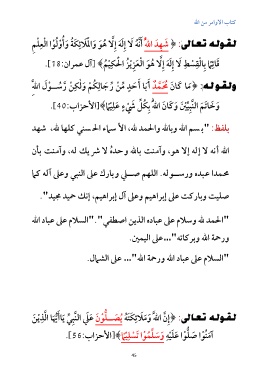 كتاب الأوامر من الله
لقوله تعالى: ﴿ شَهِدَ اللَّهُ أَنَّهُ لَا إِلَهَ إِلَّا هُوَ وَالْمَلَائِكَةُ وَأُوْلُوا الْعِلْمِ
قَائِمًا بِالْقِسْطِ لَا إِلَهَ إِلَّا هُوَ الْعَزِيزُ الْحَكِيمُ﴾ [آل عمران:18].
ولقوله: ﴿ مَا كَانَ مُحَمَّدٌ أَبَا أَحَدٍ مِّنْ رِجَالِكُمْ وَلَكِنْ رَّسُولَ اللهِ
وَخَاتَمَ النَّبِيِّينَ وَكَانَ اللهُ بِكُلِّ شَيْءٍ عَلِيمًا﴾[الأحزاب:40].
بلفظ: "بسم الله وبالله والحمد لله، الأسماء الحسنى كلها لله، شهد
الله أنه لا إله إلا هو، وآمنت بالله وحده لا شريك له، وآمنت بأن
محمدا عبده ورسوله. اللهم صلي وبارك على النبي وعلى آله كما
صليت وباركت على إبراهيم وعلى آل إبراهيم، إنك حميد مجيد".
"الحمد لله وسلام على عباده الذين اصطفي"."السلام على عباد الله
ورحمة الله وبركاته"...على اليمين.
"السلام على عباد الله ورحمة الله"... على الشمال.
لقوله تعالى: ﴿إِنَّ اللهَ وَمَلَائِكَتَهُ يُصَلُّونَ عَلَى النَّبِيِّ يَاأَيُّهَا الَّذِينَ
آمَنُوا صَلُّوا عَلَيْهِ وَسَلِّمُوا تَسْلِيمًا﴾[الأحزاب:56].